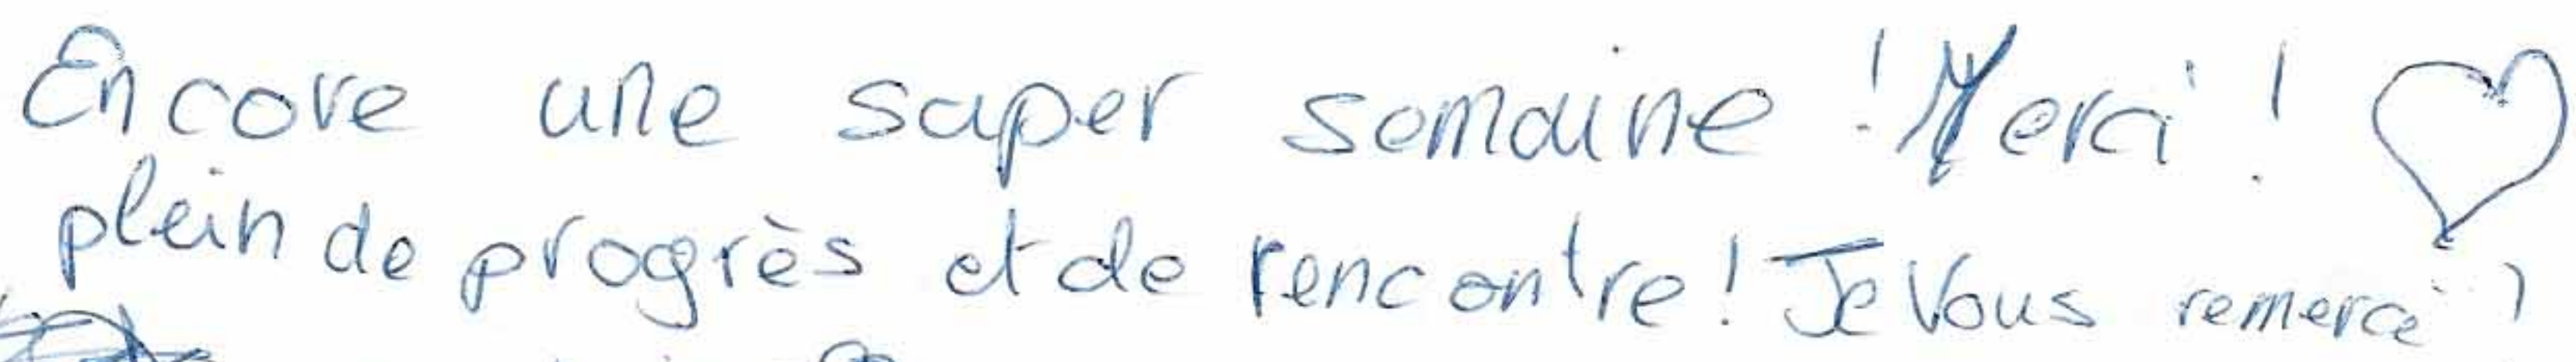 Encore une super semaine ! Merci !
plein de progrès et de rencontre ! Je Vous